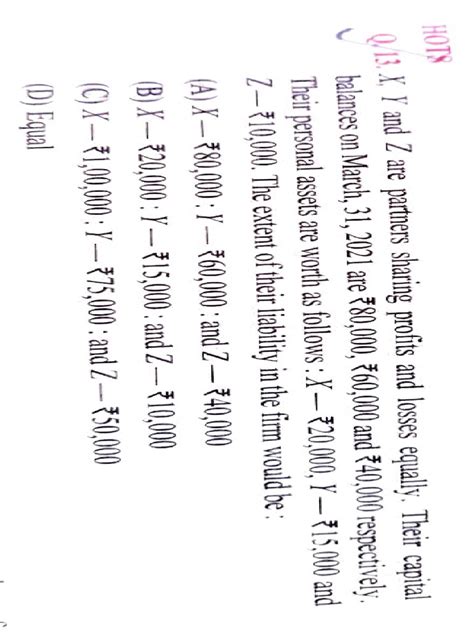 HOTS
Q. 13. X, Y and Z are partners sharing profits and losses equally. Their capital
balances on March, 31, 2021 are ₹80,000, ₹60,000 and ₹40,000 respectively.
Their personal assets are worth as follows : X — ₹20,000, Y — ₹15,000 and
Z — ₹10,000. The extent of their liability in the firm would be :
(A) X — ₹80,000 : Y — ₹60,000 : and Z — ₹40,000
(B) X — ₹20,000 : Y — ₹15,000 : and Z — ₹10,000
(C) X — ₹1,00,000 : Y — ₹75,000 : and Z — ₹50,000
(D) Equal